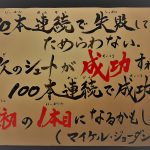 0本連続で失敗して
ためらわない。
次のシュートが成功すれ
100本連続で成功
初の1本目になるかもし
(マイケル・ジョーダン